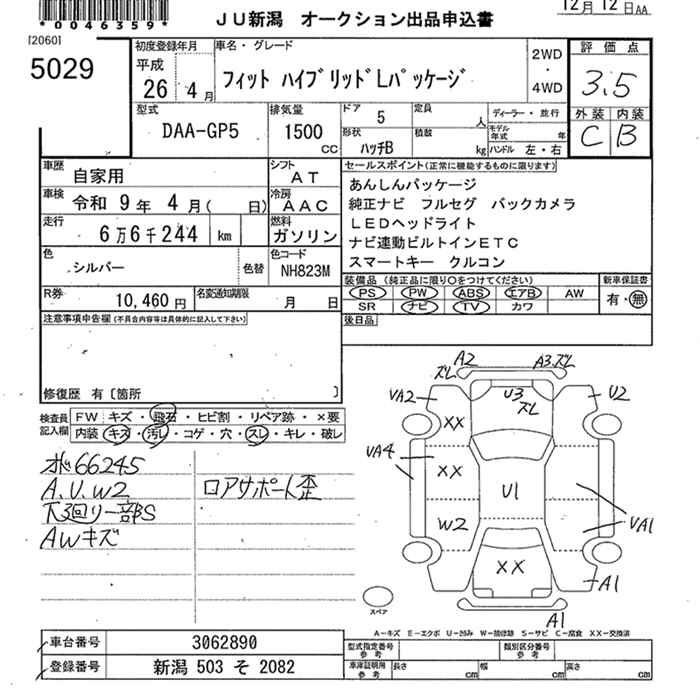 *0046359*
JU新潟 オークション出品申込書
12月12日AA
[2060]
5029
初度登録年月
平成
26年4月
車名・グレード
フィット ハイブリッドLパッケージ
2WD
・
4WD
評価点
3.5
外装 内装
C B
型式
DAA-GP5
排気量
1500
CC
ドア
5
形状
ハッチB
定員
人
積載
kg
ディーラー・並行
モデル年式 年
ハンドル 左・右
車歴
自家用
シフト
AT
車検
令和 9年 4月( 日)
冷房
AAC
走行
6万6千244 km
燃料
ガソリン
色
シルバー
色替
色コード
NH823M
R券
10,460円
名変通知期限
月 日
セールスポイント(正常に機能するものに限ります)
あんしんパッケージ
純正ナビ フルセグ バックカメラ
LEDヘッドライト
ナビ連動ビルトインETC
スマートキー クルコン
装備品(純正品に限り○をつけてください)
PS PW ABS エアB AW
SR ナビ TV カワ
新車保証書
有・無
後日品
注意事項申告欄(不具合内容等は具体的に記入して下さい)
修復歴 有〔箇所 〕
検査員
記入欄
FW キズ・飛石・ヒビ割・リペア跡・×要
内装 キズ・汚レ・コゲ・穴・スレ・キレ・破レ
水も66245
A.U.W2
下廻り一部S
AWキズ
ロアサポート歪
A2
ズレ
A3ズレ
VA2
U3
ズレ
U2
XX
VA4
XX
U1
W2
VA1
XX
A1
A1
スペア
A-キズ E-エクボ U-凹み W-補修跡 S-サビ C-腐食 XX-交換済
車台番号
3062890
登録番号
新潟 503 そ 2082
型式指定番号
参考
類別区分番号
参考
車庫証明用
参考
長さ cm
幅 cm
高さ cm